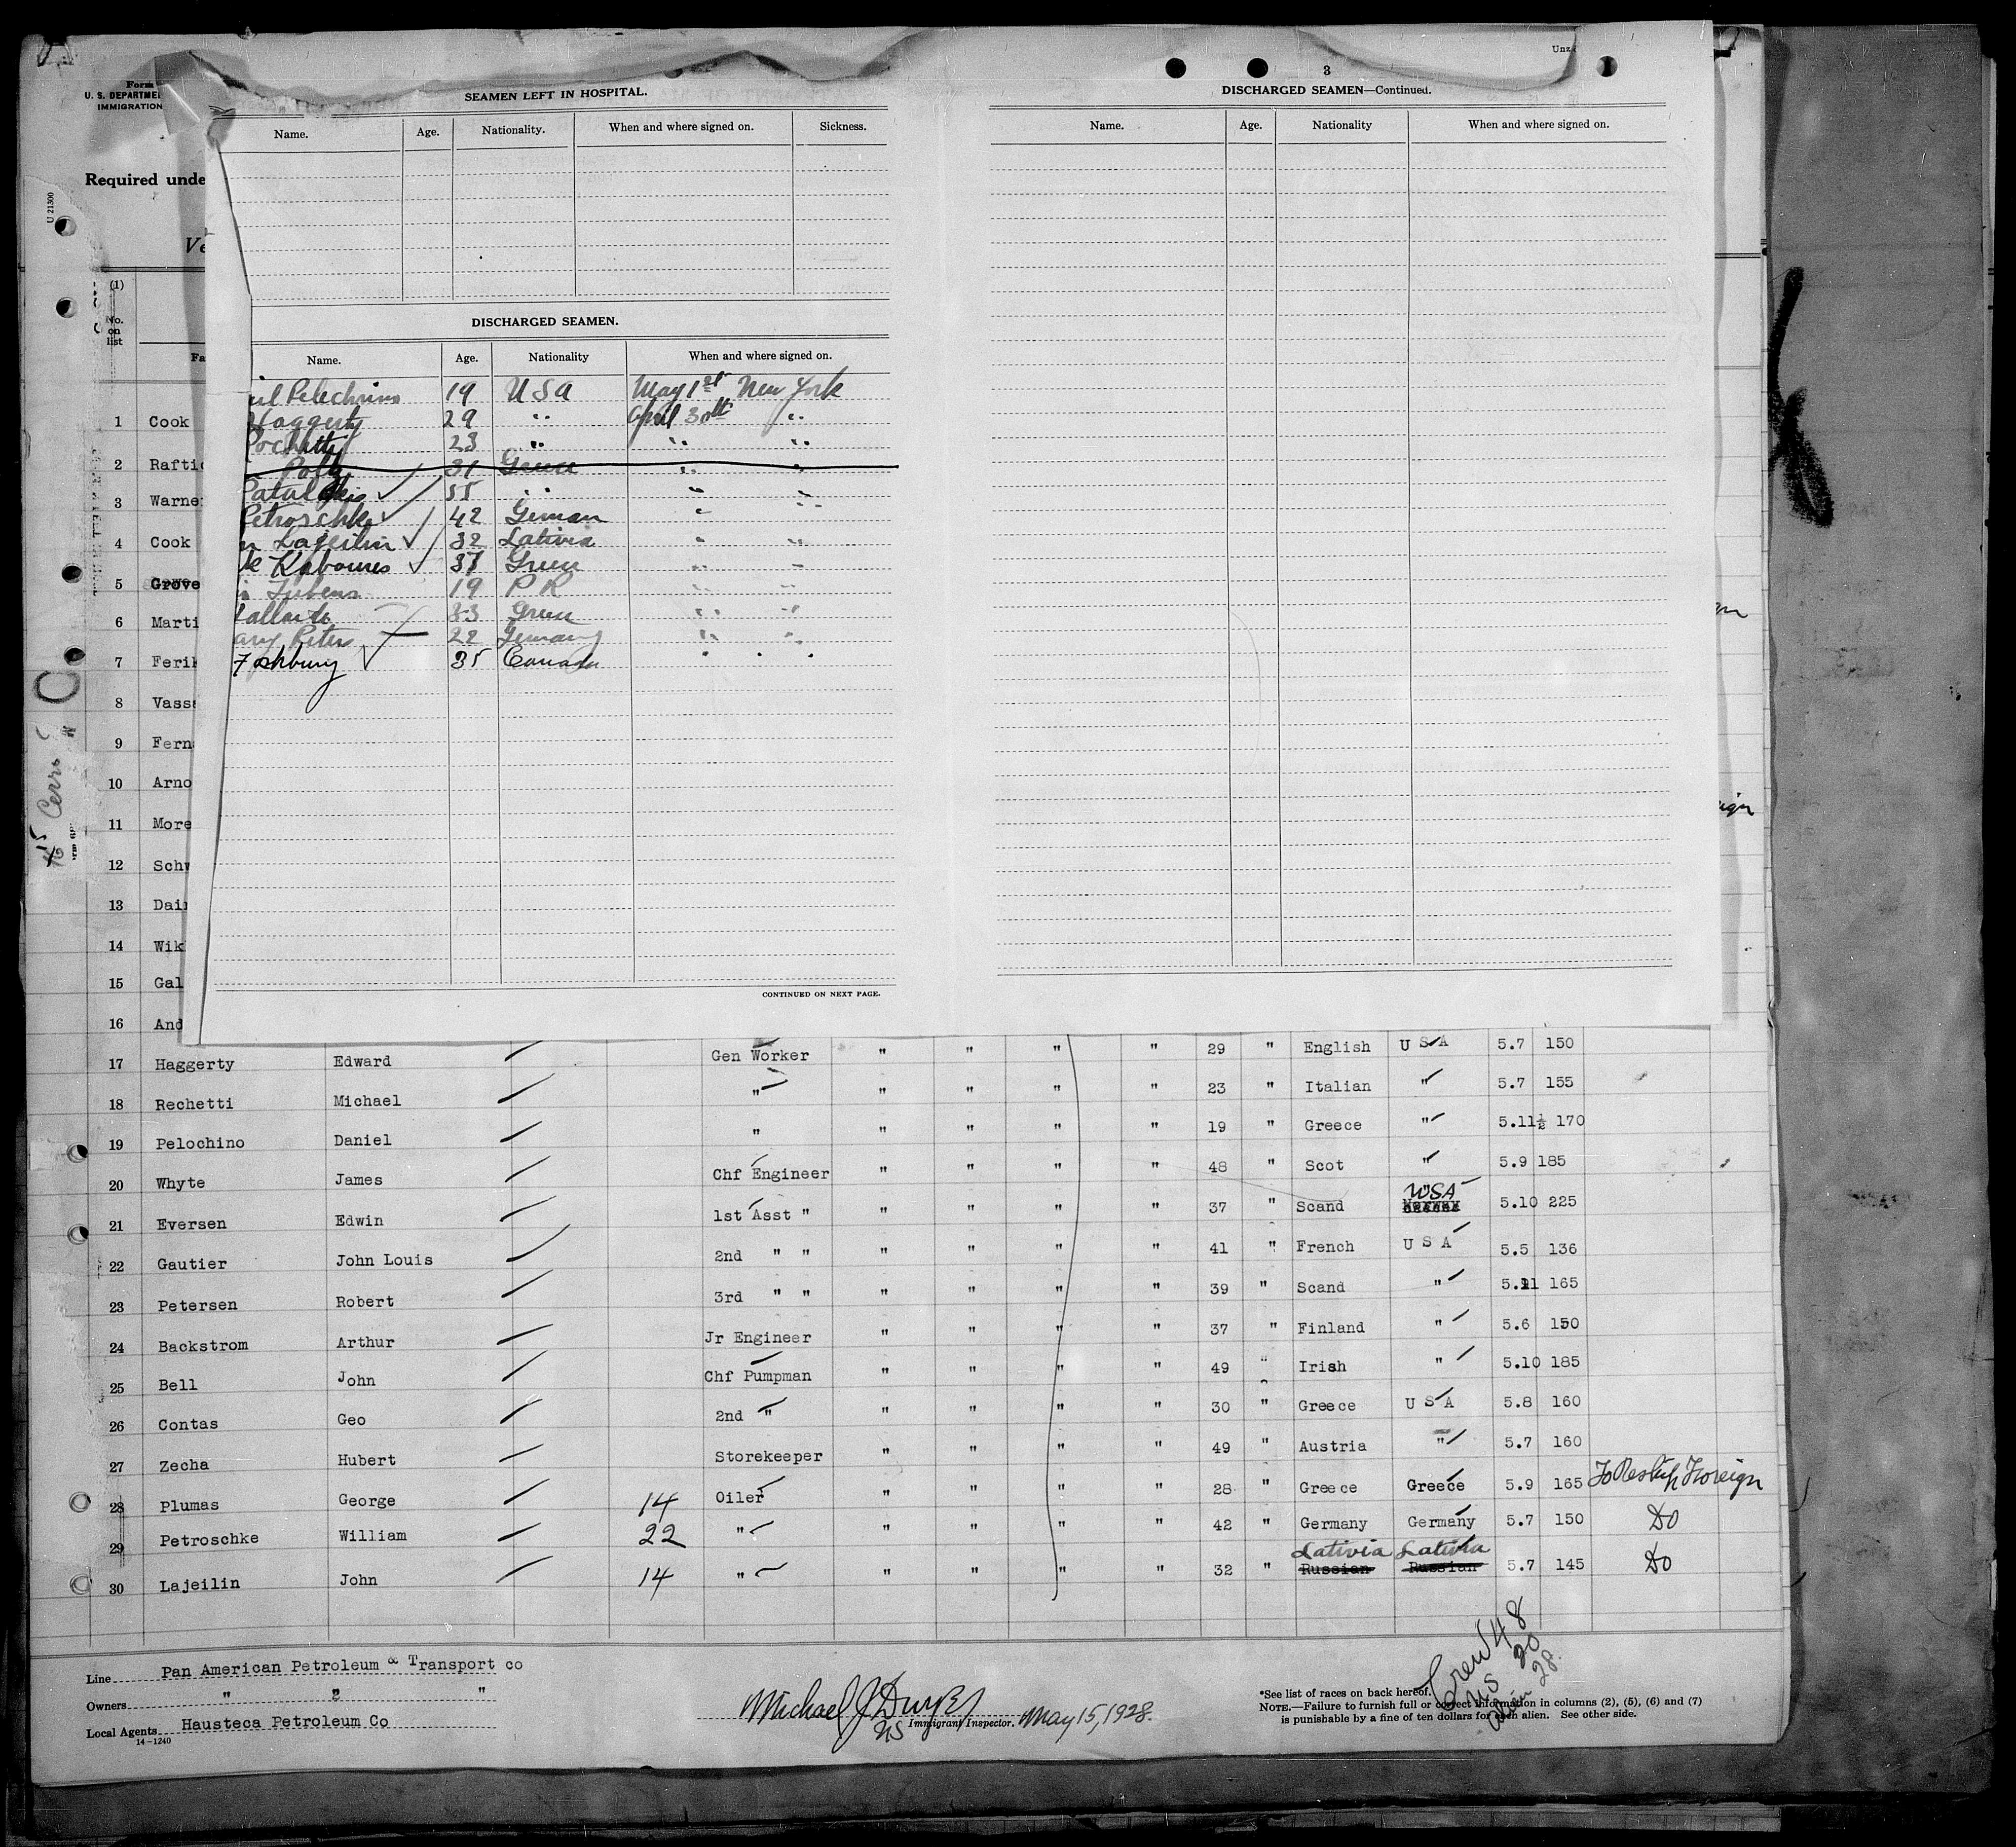 Form
U. S. DEPARTME
IMMIGRATION
Required unde
Ve
U 21300
(1)
No. on list
Fa
1 Cook
2 Raftic
3 Warne
4 Cook
5 Grove
6 Marti
7 Ferik
8 Vass
9 Fern
10 Arno
11 More
12 Schw
13 Dai
14 Wik
15 Gal
16 And
SEAMEN LEFT IN HOSPITAL.
Name. Age. Nationality. When and where signed on. Sickness.
DISCHARGED SEAMEN.
Name. Age. Nationality When and where signed on.
Pelechino 19 USA May 1st New York
Haggerty 29 " April 30th "
Rochetty 23 " " "
Poly 31 Greece " "
55 " " "
Petroschke 42 German " "
Lajeilin 32 Lativia " "
Kaboures 37 Greece " "
Tubens 19 P R " "
33 Greece " "
Peters 22 Germany " "
Foshbury 35 Canada " "
CONTINUED ON NEXT PAGE.
3
DISCHARGED SEAMEN—Continued.
Name. Age. Nationality When and where signed on.
17 Haggerty Edward Gen Worker " " " " 29 " English U S A 5.7 150
18 Rechetti Michael " " " " " 23 " Italian " 5.7 155
19 Pelochino Daniel " " " " " 19 " Greece " 5.11½ 170
20 Whyte James Chf Engineer " " " " 48 " Scot " 5.9 185
21 Eversen Edwin 1st Asst " " " " " 37 " Scand USA 5.10 225
22 Gautier John Louis 2nd " " " " " " 41 " French U S A 5.5 136
23 Petersen Robert 3rd " " " " " " 39 " Scand " 5.11 165
24 Backstrom Arthur Jr Engineer " " " " 37 " Finland " 5.6 150
25 Bell John Chf Pumpman " " " " 49 " Irish " 5.10 185
26 Contas Geo 2nd " " " " " 30 " Greece U S A 5.8 160
27 Zecha Hubert Storekeeper " " " " 49 " Austria " 5.7 160
28 Plumas George 14 Oiler " " " " 28 " Greece Greece 5.9 165 To Reship Foreign
29 Petroschke William 22 " " " " " 42 " Germany Germany 5.7 150 Do
30 Lajeilin John 14 " " " " " 32 " Lativia Russian Lativia Russian 5.7 145 Do
Crew 48
US 20
Alien 28
Line Pan American Petroleum & Transport co
Owners " " "
Local Agents Hausteca Petroleum Co
14-1240
Michael J Dwyer
US Immigrant Inspector. May 15, 1928.
*See list of races on back hereof.
NOTE.—Failure to furnish full or correct information in columns (2), (5), (6) and (7)
is punishable by a fine of ten dollars for each alien. See other side.